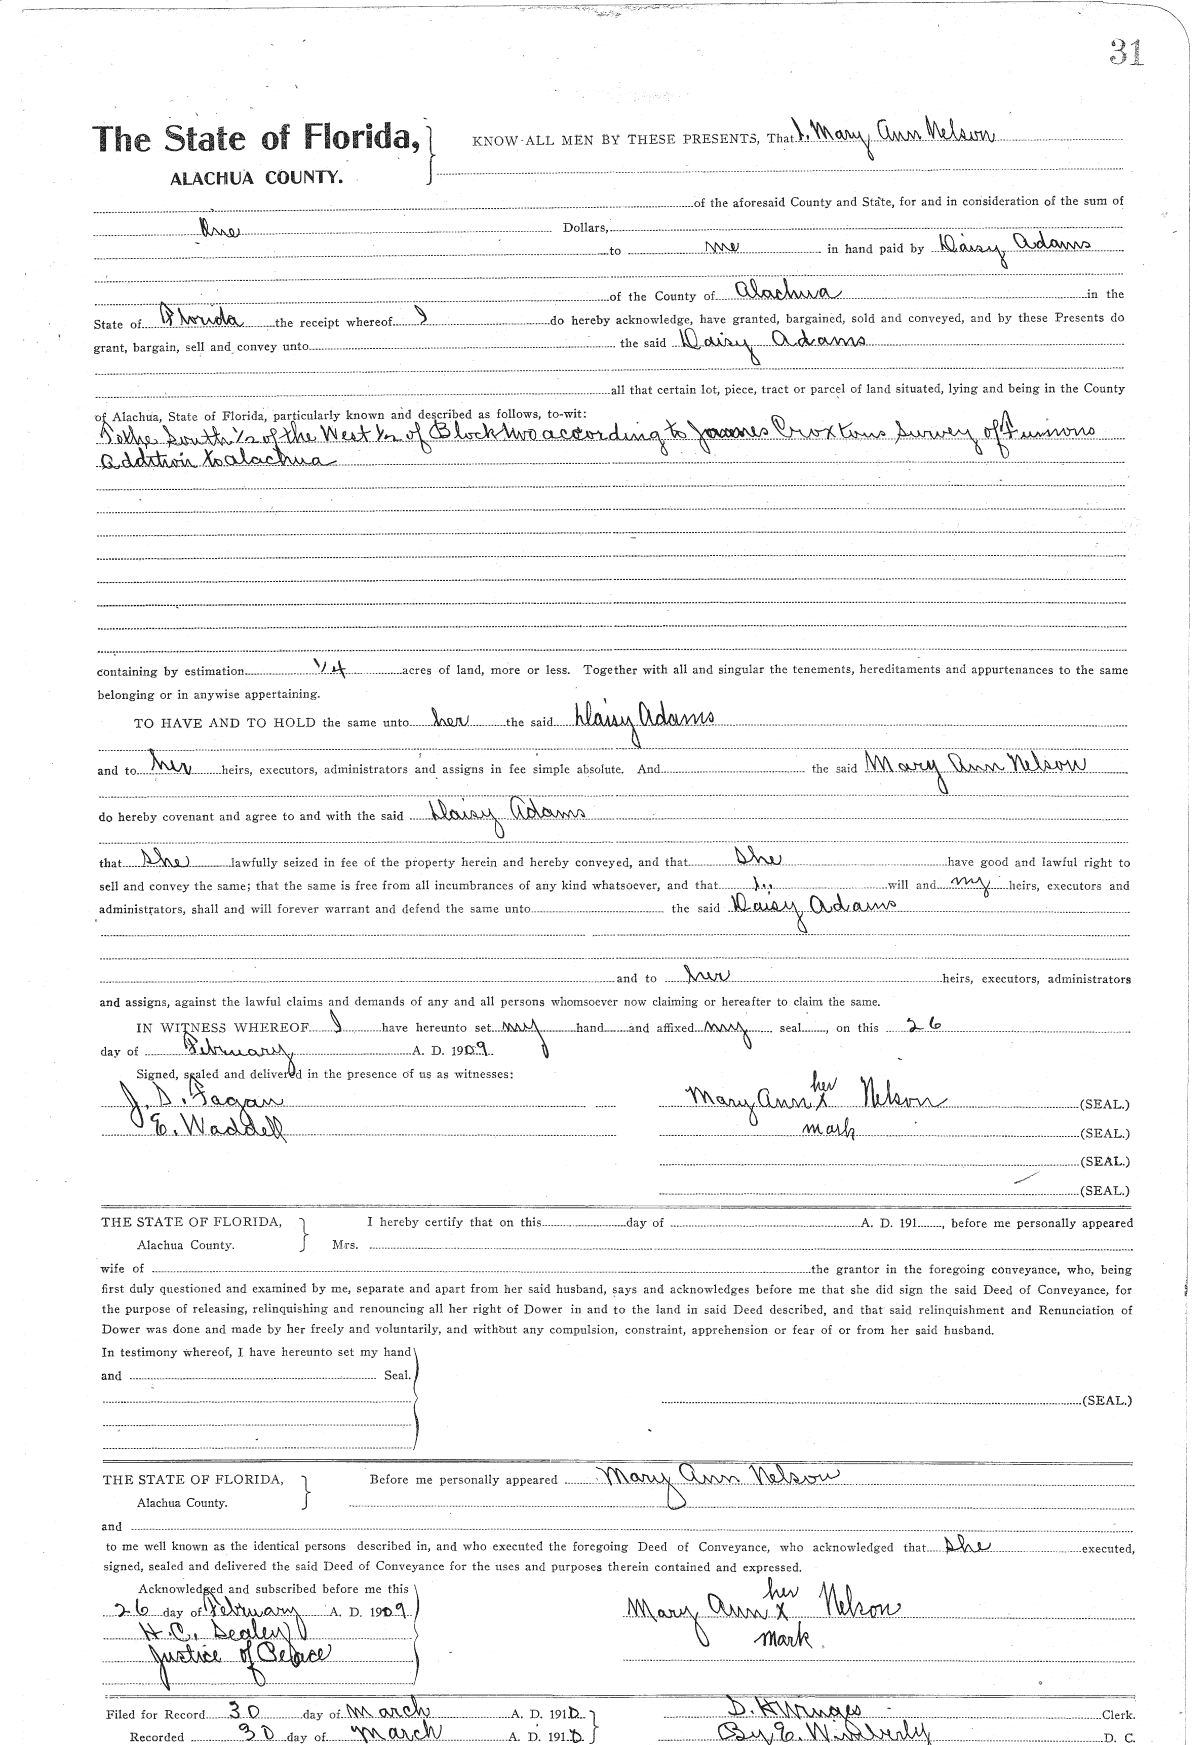 31
The State of Florida, KNOW ALL MEN BY THESE PRESENTS, That I, Mary Ann Nelson
ALACHUA COUNTY.
of the aforesaid County and State, for and in consideration of the sum of
One Dollars,
to me in hand paid by Daisy Adams
of the County of Alachua in the
State of Florida the receipt whereof I do hereby acknowledge, have granted, bargained, sold and conveyed, and by these Presents do
grant, bargain, sell and convey unto the said Daisy Adams
all that certain lot, piece, tract or parcel of land situated, lying and being in the County
of Alachua, State of Florida, particularly known and described as follows, to-wit:
South 1/2 of the West 1/2 of Block two according to Croxtons Survey of
Addition to Alachua
containing by estimation 1/4 acres of land, more or less. Together with all and singular the tenements, hereditaments and appurtenances to the same
belonging or in anywise appertaining.
TO HAVE AND TO HOLD the same unto her the said Daisy Adams
and to her heirs, executors, administrators and assigns in fee simple absolute. And the said Mary Ann Nelson
do hereby covenant and agree to and with the said Daisy Adams
that she lawfully seized in fee of the property herein and hereby conveyed, and that she have good and lawful right to
sell and convey the same; that the same is free from all incumbrances of any kind whatsoever, and that I will and my heirs, executors and
administrators, shall and will forever warrant and defend the same unto the said Daisy Adams
and to her heirs, executors, administrators
and assigns, against the lawful claims and demands of any and all persons whomsoever now claiming or hereafter to claim the same.
IN WITNESS WHEREOF I have hereunto set my hand and affixed my seal, on this 26
day of February A. D. 1909.
Signed, sealed and delivered in the presence of us as witnesses:
her
J. D. Fagan Mary Ann X Nelson (SEAL.)
E. Waddell mark (SEAL.)
(SEAL.)
(SEAL.)
THE STATE OF FLORIDA, I hereby certify that on this day of A. D. 191, before me personally appeared
Alachua County. Mrs.
wife of the grantor in the foregoing conveyance, who, being
first duly questioned and examined by me, separate and apart from her said husband, says and acknowledges before me that she did sign the said Deed of Conveyance, for
the purpose of releasing, relinquishing and renouncing all her right of Dower in and to the land in said Deed described, and that said relinquishment and Renunciation of
Dower was done and made by her freely and voluntarily, and without any compulsion, constraint, apprehension or fear of or from her said husband.
In testimony whereof, I have hereunto set my hand
and Seal.
(SEAL.)
THE STATE OF FLORIDA, Before me personally appeared Mary Ann Nelson
Alachua County.
and
to me well known as the identical persons described in, and who executed the foregoing Deed of Conveyance, who acknowledged that she executed,
signed, sealed and delivered the said Deed of Conveyance for the uses and purposes therein contained and expressed.
Acknowledged and subscribed before me this her
26 day of February A. D. 1909 Mary Ann X Nelson
H. C. Dealey mark.
Justice of Peace
Filed for Record 30 day of March A. D. 1910. Clerk.
Recorded 30 day of March A. D. 1910. By E. Wimberly D. C.